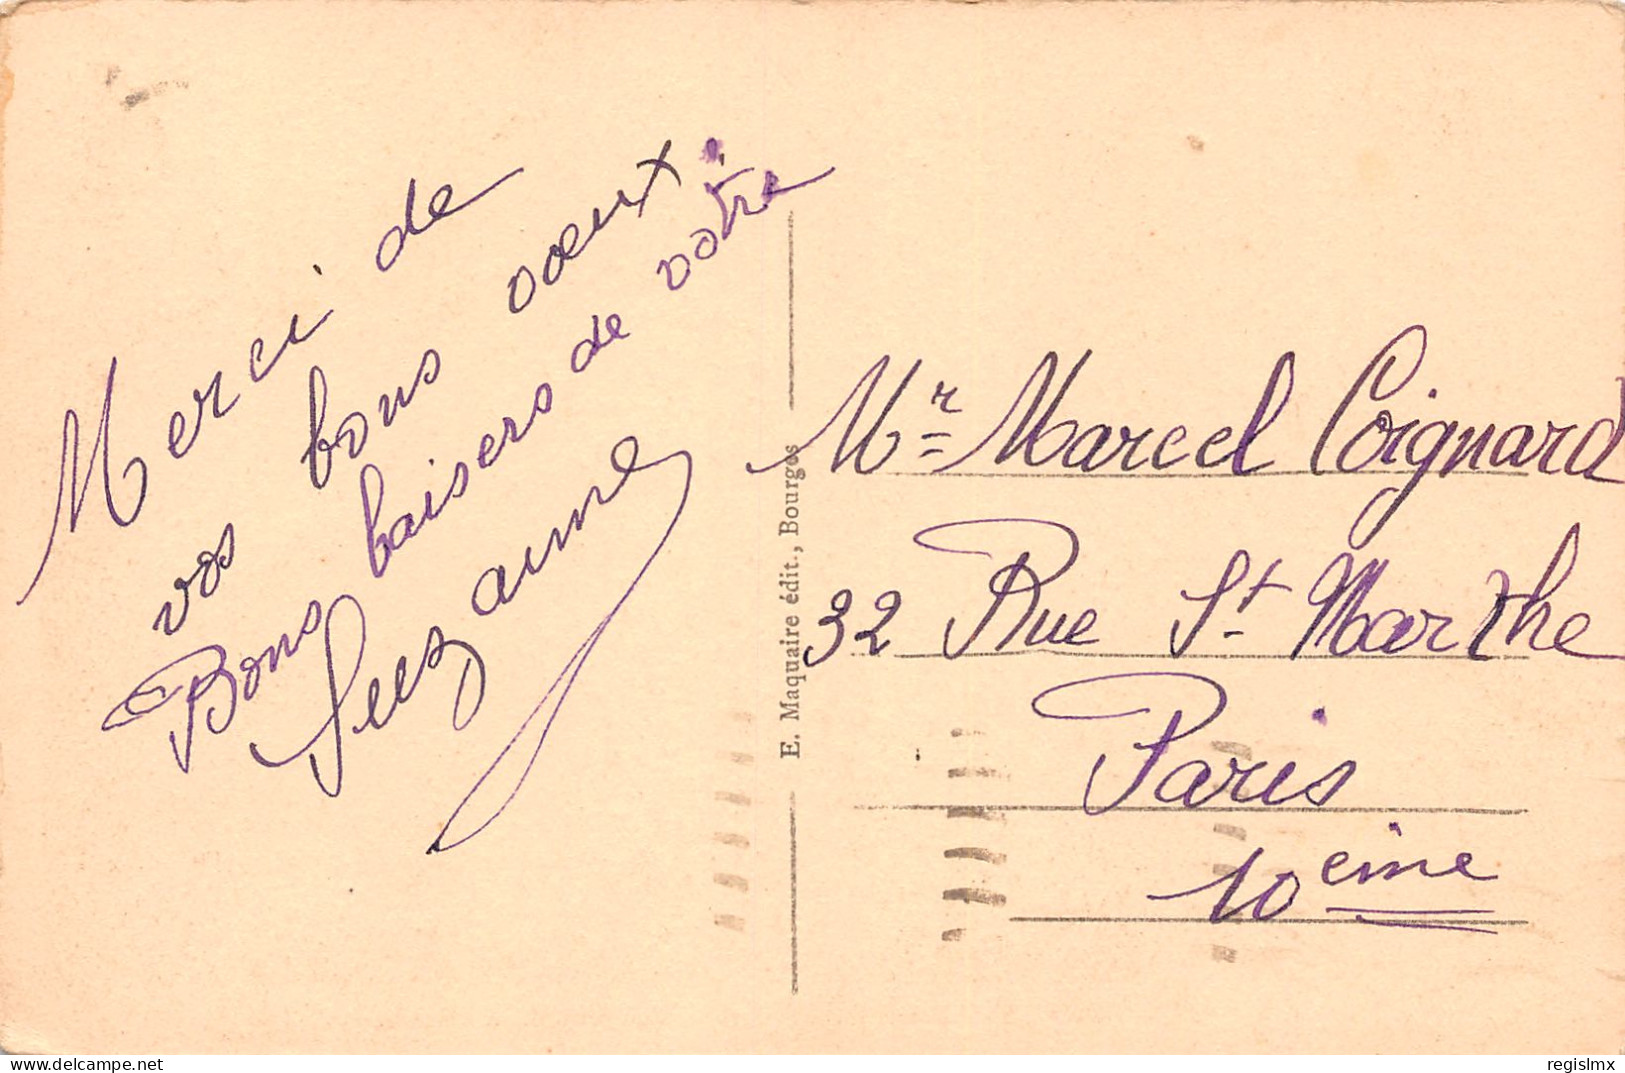 Merci de
vos bons voeux.
Bons baisers de votre
Suzanne
E. Maquaire édit., Bourges
Mr Marcel Coignard
32 Rue St Marthe
Paris
10eme
www.delcampe.net
regislmx